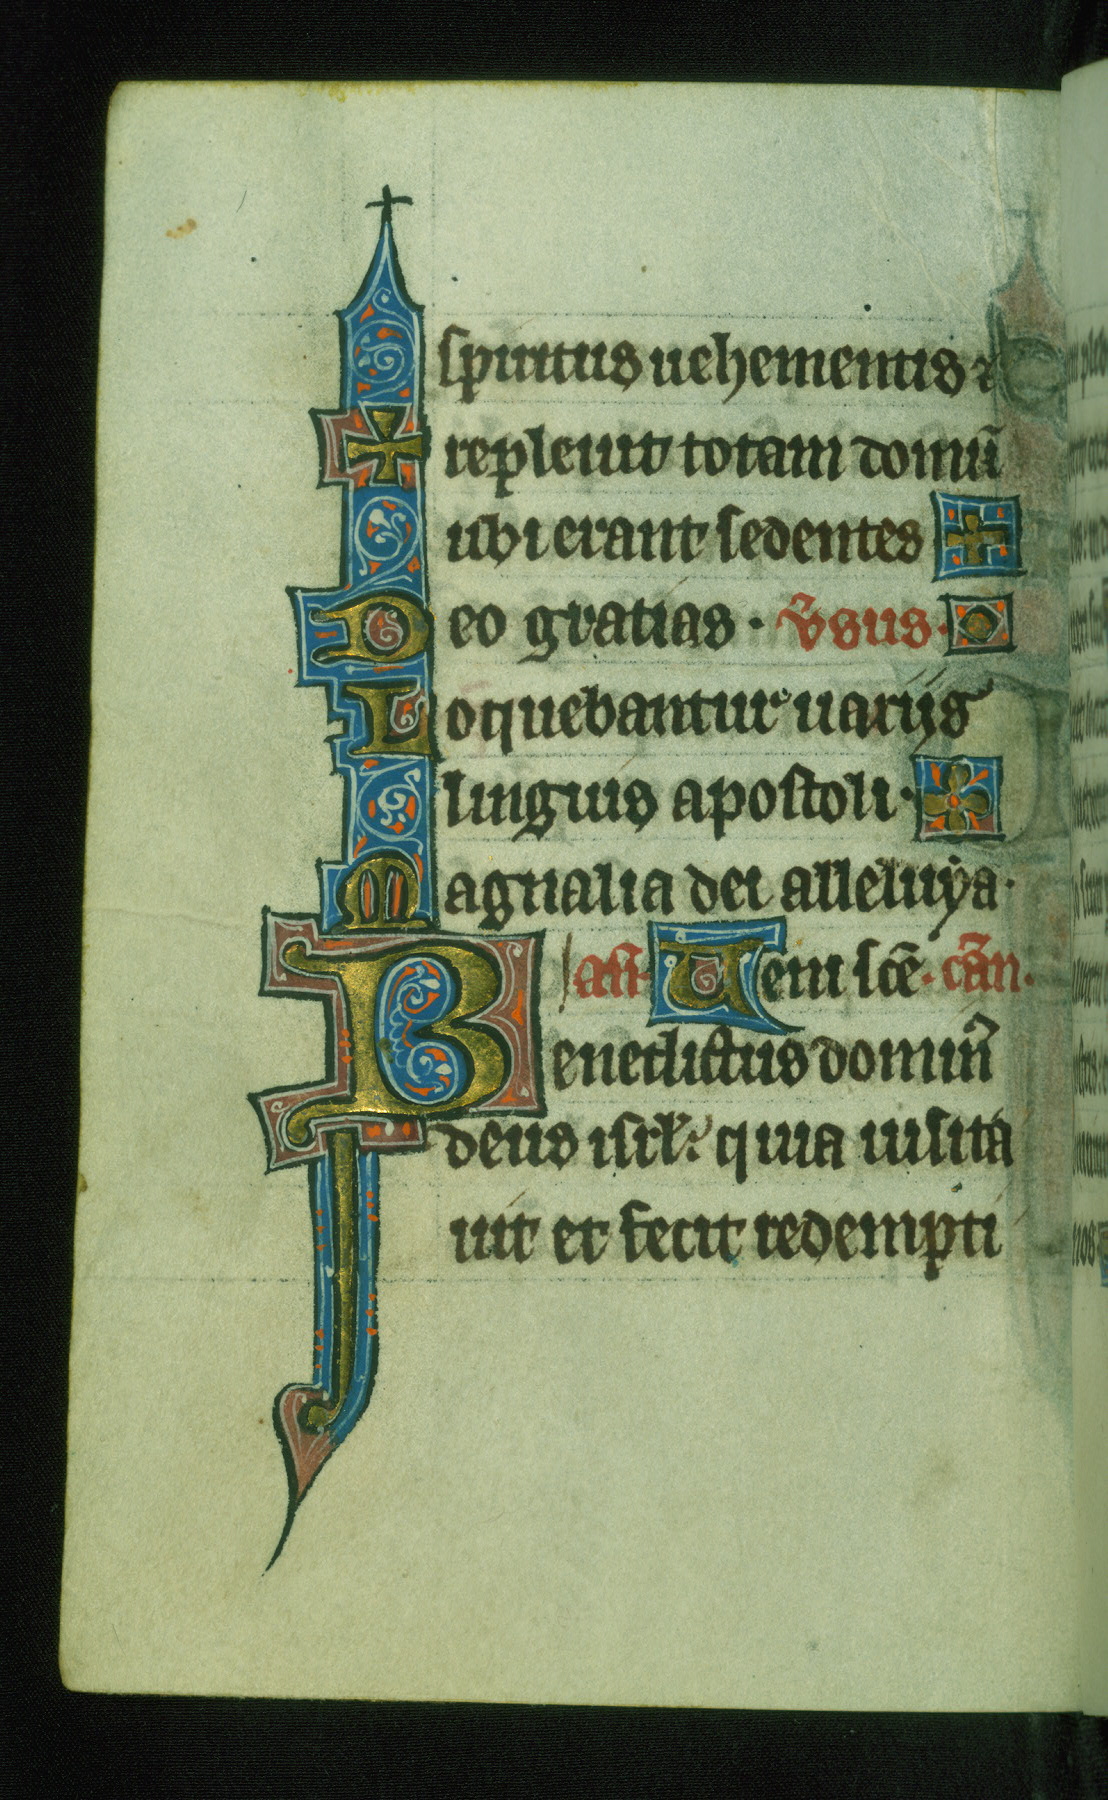 spiritus uehementis ⁊
repleuit totam domū
ubi erant sedentes
Deo gratias · v̄sus ·
Loquebantur uariis
linguis apostoli ·
Magnalia dei alleluya ·
añ · Ueni scē · cān ·
Benedictus domin̄
deus isrl : quia uisita
uit et fecit redempti